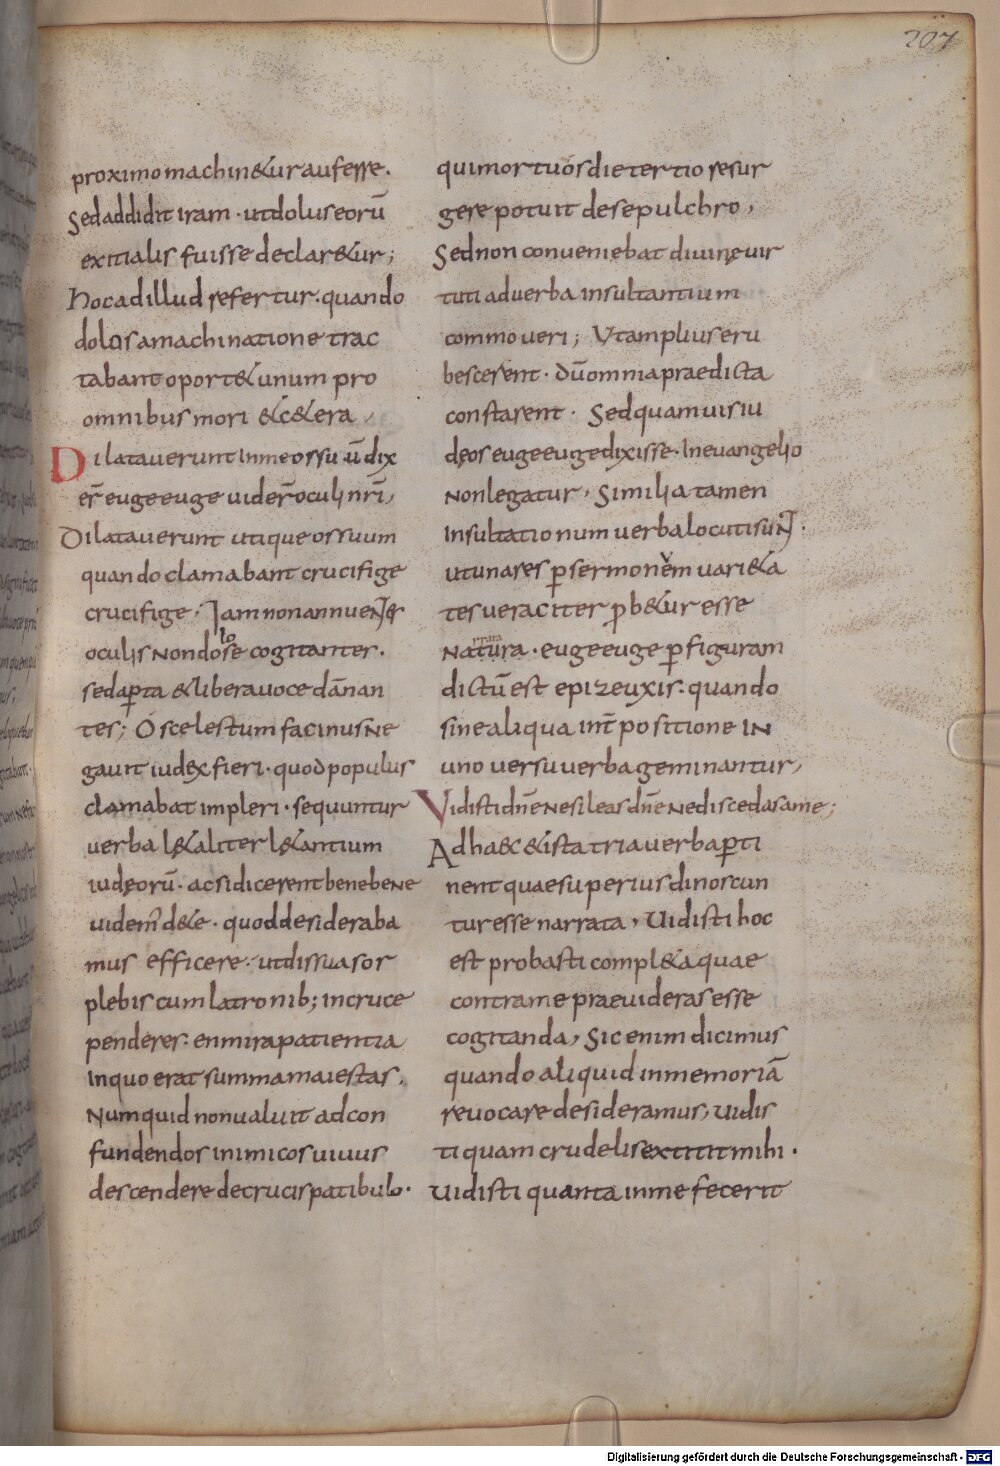 207
proximo machin&ur auferre.
Sed addidit iram · ut dolus eorū
exitialis fuisse declar&ur;
hoc ad illud refertur. quando
dolosa machinatione trac
tabant oport& unum pro
omnibus mori &c&era
Dilataverunt in me os suū dix
er̄ euge euge vider̄ oculi nr̄i,
Dilataverunt utique os suum
quando clamabant crucifige
crucifige · Iam non annuentes
oculis non dolose cogitantes.
sed aꝑta & libera voce dānan
tes; O scelestum facinus ne
gavit iudex fieri · quod populus
clamabat impleri · sequuntur
verba l&aliter l&antium
iudęorū · ac si dicerent bene bene
videm' de te · quod desideraba
mus efficere · ut dissuasor
plebis cum latronib; in cruce
penderes. en mira patientia
in quo erat summa maiestas.
Numquid non valuit ad con
fundendos inimicos vivus
descendere de crucis patibulo.
qui mortuos die tertio resur
gere potuit de sepulchro,
Sed non conveniebat divinę vir
tuti ad verba insultantium
commoveri; Ut amplius eru
bescerent · dū omnia praedicta
constarent · Sed quamvis iu
dęos euge euge dixisse · In evangelio
non legatur, Similia tamen
insultationum verba locuti sunt.
ut una res ꝑ sermonem vari&a
tes veraciter ꝓb&ur esse
Natura · euge euge ꝑ figuram
dictū est epizeuxis. quando
sine aliqua int̄positione in
uno versu verba geminantur,
Vidisti dn̄e ne sileas dn̄e ne discedas a me;
Ad haec & ista tria verba ꝑti
nent quae superius dinoscun
tur esse narrata, Vidisti hoc
est probasti compl&a quae
contra me praevideras esse
cogitanda, Sic enim dicimus
quando aliquid in memoriā
revocare desideramus, vidis
ti quam crudelis extitit mihi.
Vidisti quanta in me fecerit
Digitalisierung gefördert durch die Deutsche Forschungsgemeinschaft - DFG